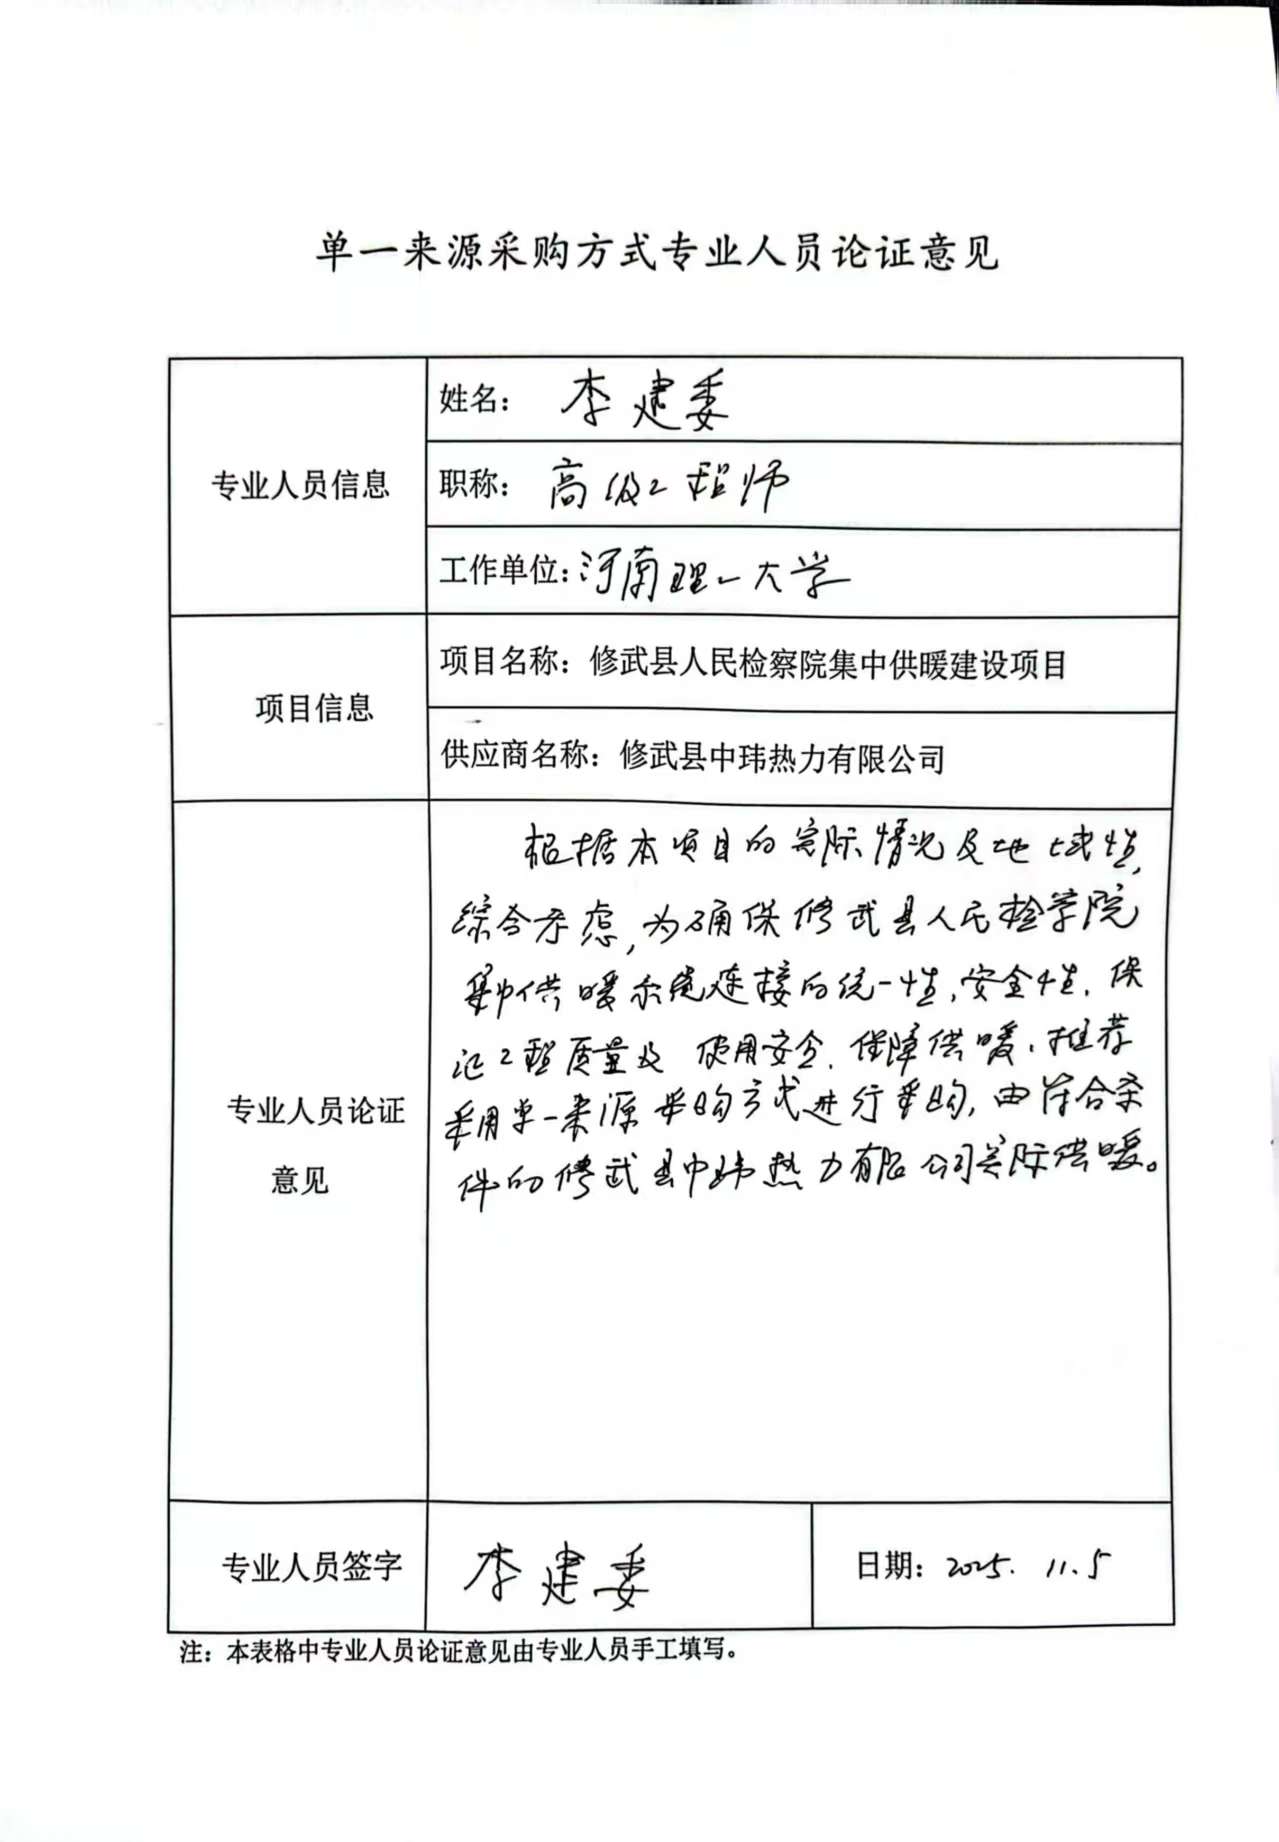 单一来源采购方式专业人员论证意见
专业人员信息
姓名： 李建委
职称： 高级工程师
工作单位：河南理工大学
项目信息
项目名称：修武县人民检察院集中供暖建设项目
供应商名称：修武县中玮热力有限公司
专业人员论证
意见
根据本项目的实际情况及地域性,
综合考虑,为确保修武县人民检察院
集中供暖系统连接的统一性,安全性,保
证工程质量及使用安全,保障供暖,推荐
采用单一来源采购方式进行采购,由符合条
件的修武县中玮热力有限公司实际供暖。
专业人员签字
李建委
日期：2025.11.5
注：本表格中专业人员论证意见由专业人员手工填写。